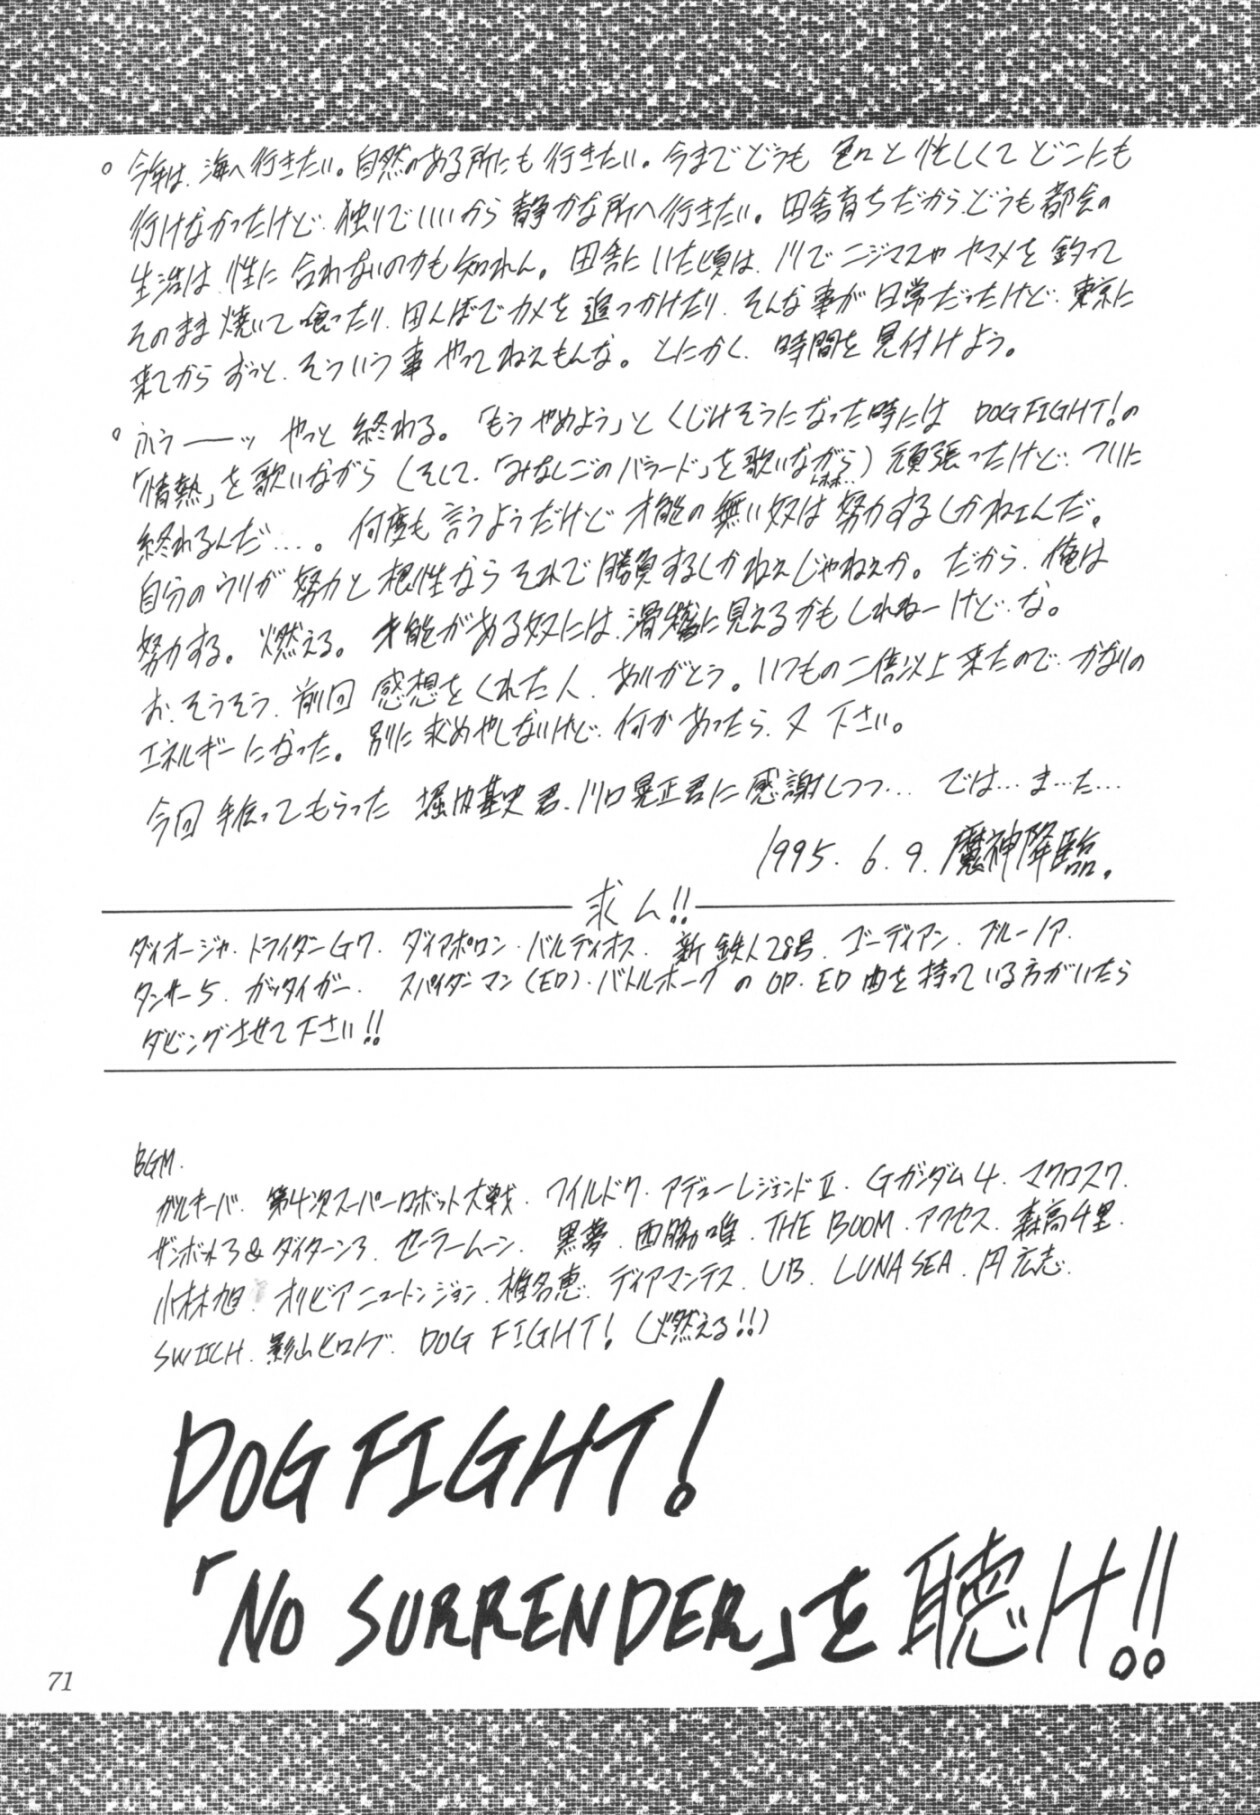 ○ 今年は、海へ行きたい。自然のある所にも行きたい。今までどうも色々と忙しくてどこにも
行けなかったけど、独りでいいから静かな所へ行きたい。田舎育ちだから、どうも都会の
生活は、性に合わないのかも知れん。田舎にいた頃は、川でニジマスやヤマメを釣って
そのまま焼いて喰ったり、田んぼでカメを追っかけたり、そんな事が日常だったけど、東京に
来てからずっと、そういう事やってねえもんな。とにかく、時間を見付けよう。
○ ふうーーッ やっと終わる。「もうやめよう」とくじけそうになった時には DOG FIGHT!の
「情熱」を歌いながら（そして、「みなしごのバラード」を歌いながら）頑張ったけど、ついに
終わるんだ…。何度も言うようだけど才能の無い奴は努力するしかねェんだ。
自分のウリが努力と根性ならそれで勝負するしかねぇじゃねぇか。だから、俺は
努力する。燃える。才能がある奴には、滑稽に見えるかもしれねーけど、な。
お、そうそう、前回感想をくれた人、ありがとう。いつもの二倍以上来たので、かなりの
エネルギーになった。別に求めやしないけど、何かあったら、又下さい。
今回手伝ってもらった 堀内基史君、川口晃正君に感謝しつつ… では…ま…た…
1995. 6. 9. 魔神降臨.
求ム!!
ダイオージャ、トライダーG7、ダイアポロン、バルディオス、新鉄人28号、ゴーディアン、ブルーノア、
タンサー5、ガッタイガー、スパイダーマン(ED)、バトルホークのOP、ED曲を持っている方がいたら
ダビングさせて下さい!!
BGM.
ガルキーバ、第4次スーパーロボット大戦、ワイルド7、アデューレジェンドⅡ、Gガンダム4、マクロス7、
ザンボット3＆ダイターン3、セーラームーン、黒夢、西脇唯、THE BOOM、アクセス、森高千里、
小林旭、オリビアニュートンジョン、椎名恵、ディアマンテス、UB、LUNA SEA、円広志、
SWITCH、影山ヒロノブ、DOG FIGHT!（燃える!!）
DOG FIGHT!
「NO SURRENDER」を聴け!!
71